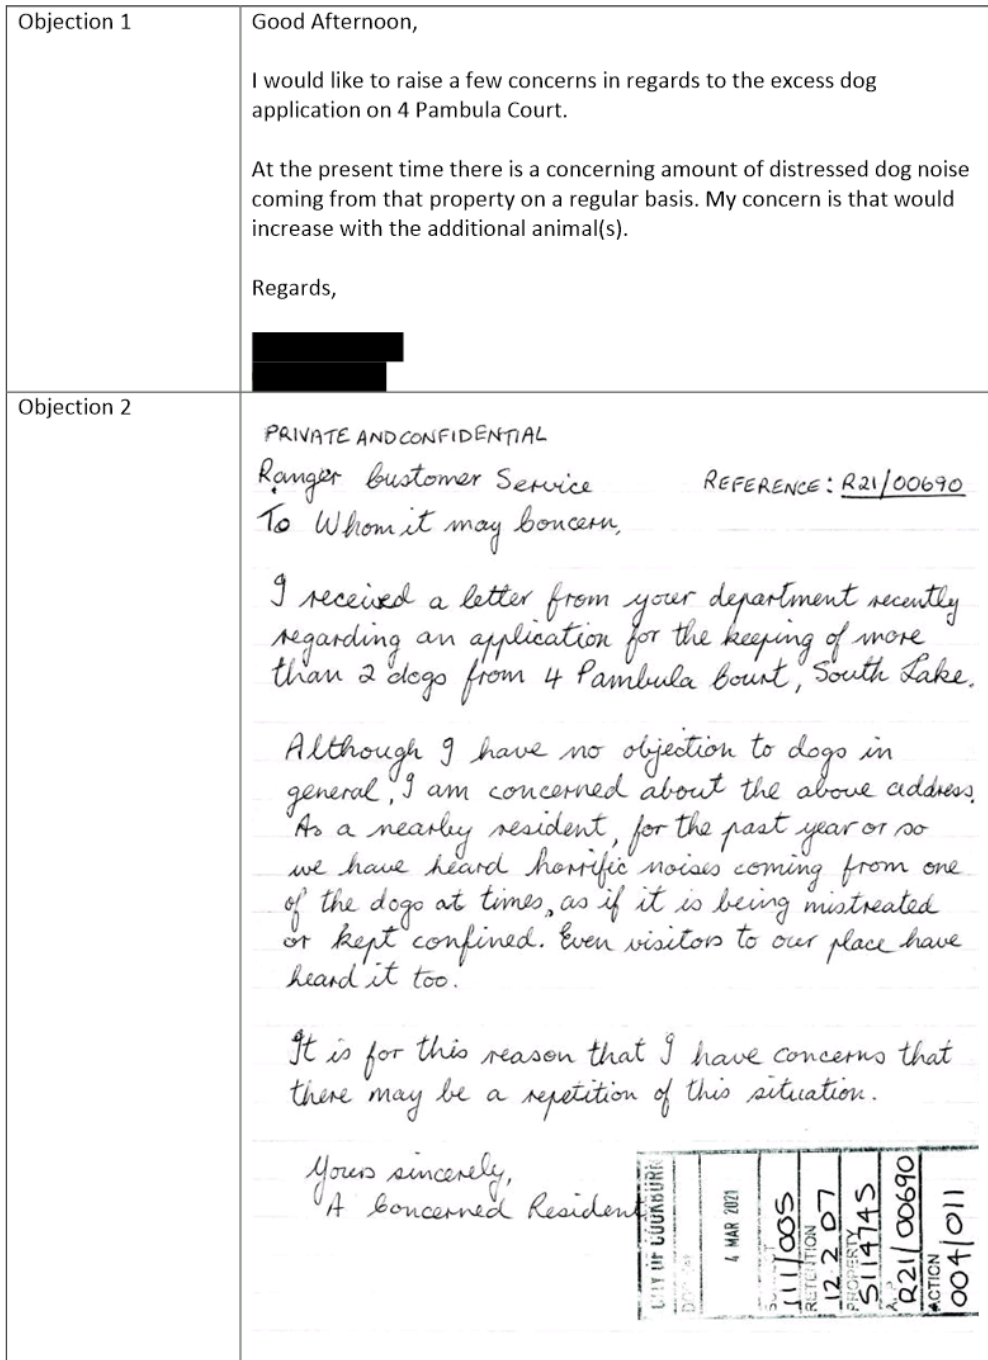 Objection 1
Good Afternoon,
I would like to raise a few concerns in regards to the excess dog
application on 4 Pambula Court.
At the present time there is a concerning amount of distressed dog noise
coming from that property on a regular basis. My concern is that would
increase with the additional animal(s).
Regards,
Objection 2
PRIVATE AND CONFIDENTIAL
Ranger Customer Service
REFERENCE: R21/00690
To Whom it may Concern,
I received a letter from your department recently
regarding an application for the keeping of more
than 2 dogs from 4 Pambula Court, South Lake.
Although I have no objection to dogs in
general, I am concerned about the above address.
As a nearby resident, for the past year or so
we have heard horrific noises coming from one
of the dogs at times, as if it is being mistreated
or kept confined. Even visitors to our place have
heard it too.
It is for this reason that I have concerns that
there may be a repetition of this situation.
Yours sincerely,
A Concerned Resident
CITY OF COCKBURN
4 MAR 2021
111/005
RETENTION
12 2 07
PROPERTY
5114745
R21/00690
ACTION
004/011